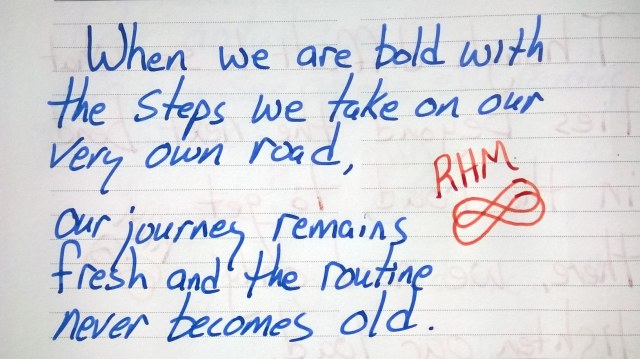 When we are bold with
the steps we take on our
very own road,
RHM
our journey remains
fresh and the routine
never becomes old.